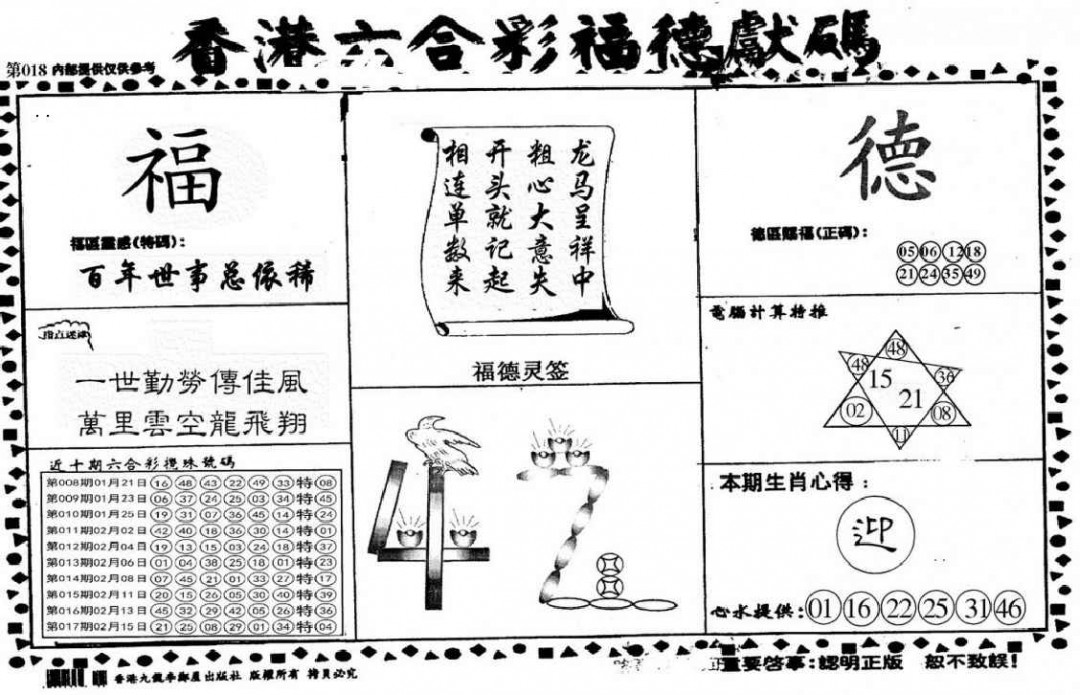 香港六合彩福德獻碼
第018 内部提供仅供参考
福
福區靈感(特碼):
百年世事总依稀
指点迷津
一世勤勞傳佳風
萬里雲空龍飛翔
近十期六合彩攪珠號碼
第008期01月21日 16 48 43 22 49 33 特 08
第009期01月23日 06 37 24 25 03 34 特 45
第010期01月25日 19 31 07 36 45 14 特 24
第011期02月02日 42 40 18 36 30 14 特 01
第012期02月04日 19 13 15 03 24 18 特 37
第013期02月06日 01 04 38 25 18 01 特 23
第014期02月08日 07 45 21 01 33 27 特 17
第015期02月11日 20 15 26 05 30 40 特 39
第016期02月13日 45 32 29 42 05 26 特 36
第017期02月15日 21 25 08 29 01 34 特 04
龙马呈祥中
粗心大意失
开头就记起
相连单数来
福德灵签
42
德
德區賜福(正碼):
05 06 12 18
21 24 35 49
電腦計算特推
48
48 36
15
21
02 08
11
本期生肖心得:
迎
心水提供: 01 16 22 25 31 46
香港九龍 出版社 版權所有 拷貝必究
重要啓事:認明正版 般不致誤!